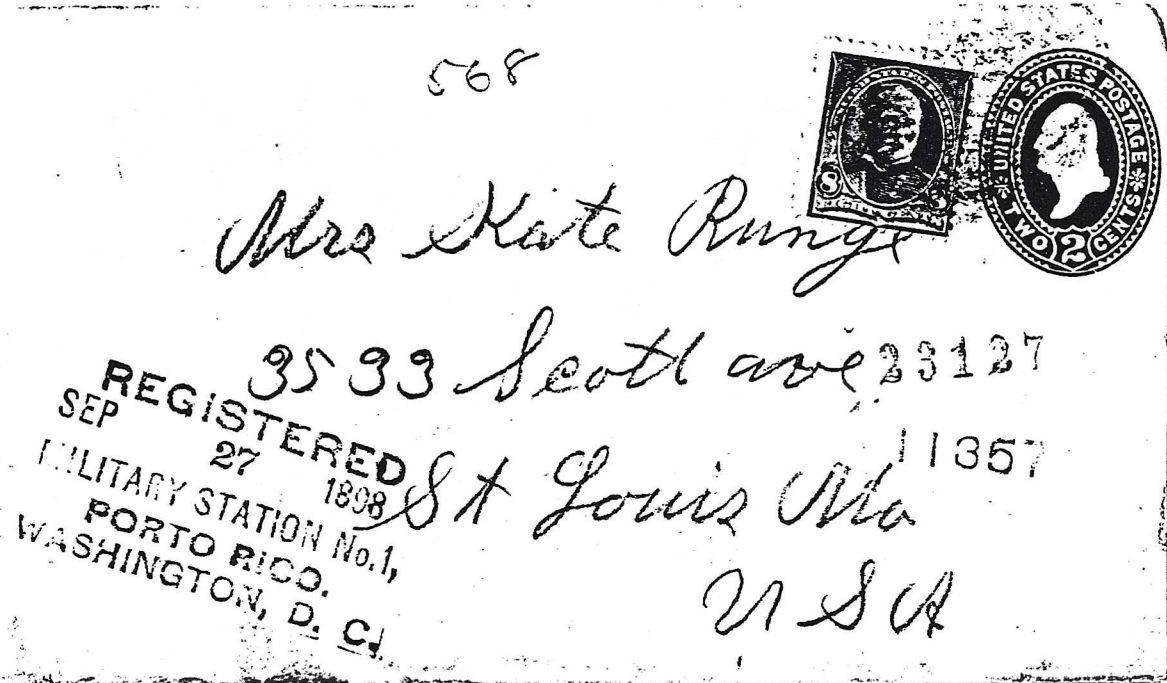 568
UNITED STATES POSTAGE
TWO 2 CENTS
8
Mrs Kate Runge
3533 Scott ave
23127
11357
St Louis Mo
U S A
REGISTERED
SEP 27 1898
MILITARY STATION No.1,
PORTO RICO.
WASHINGTON, D. C.